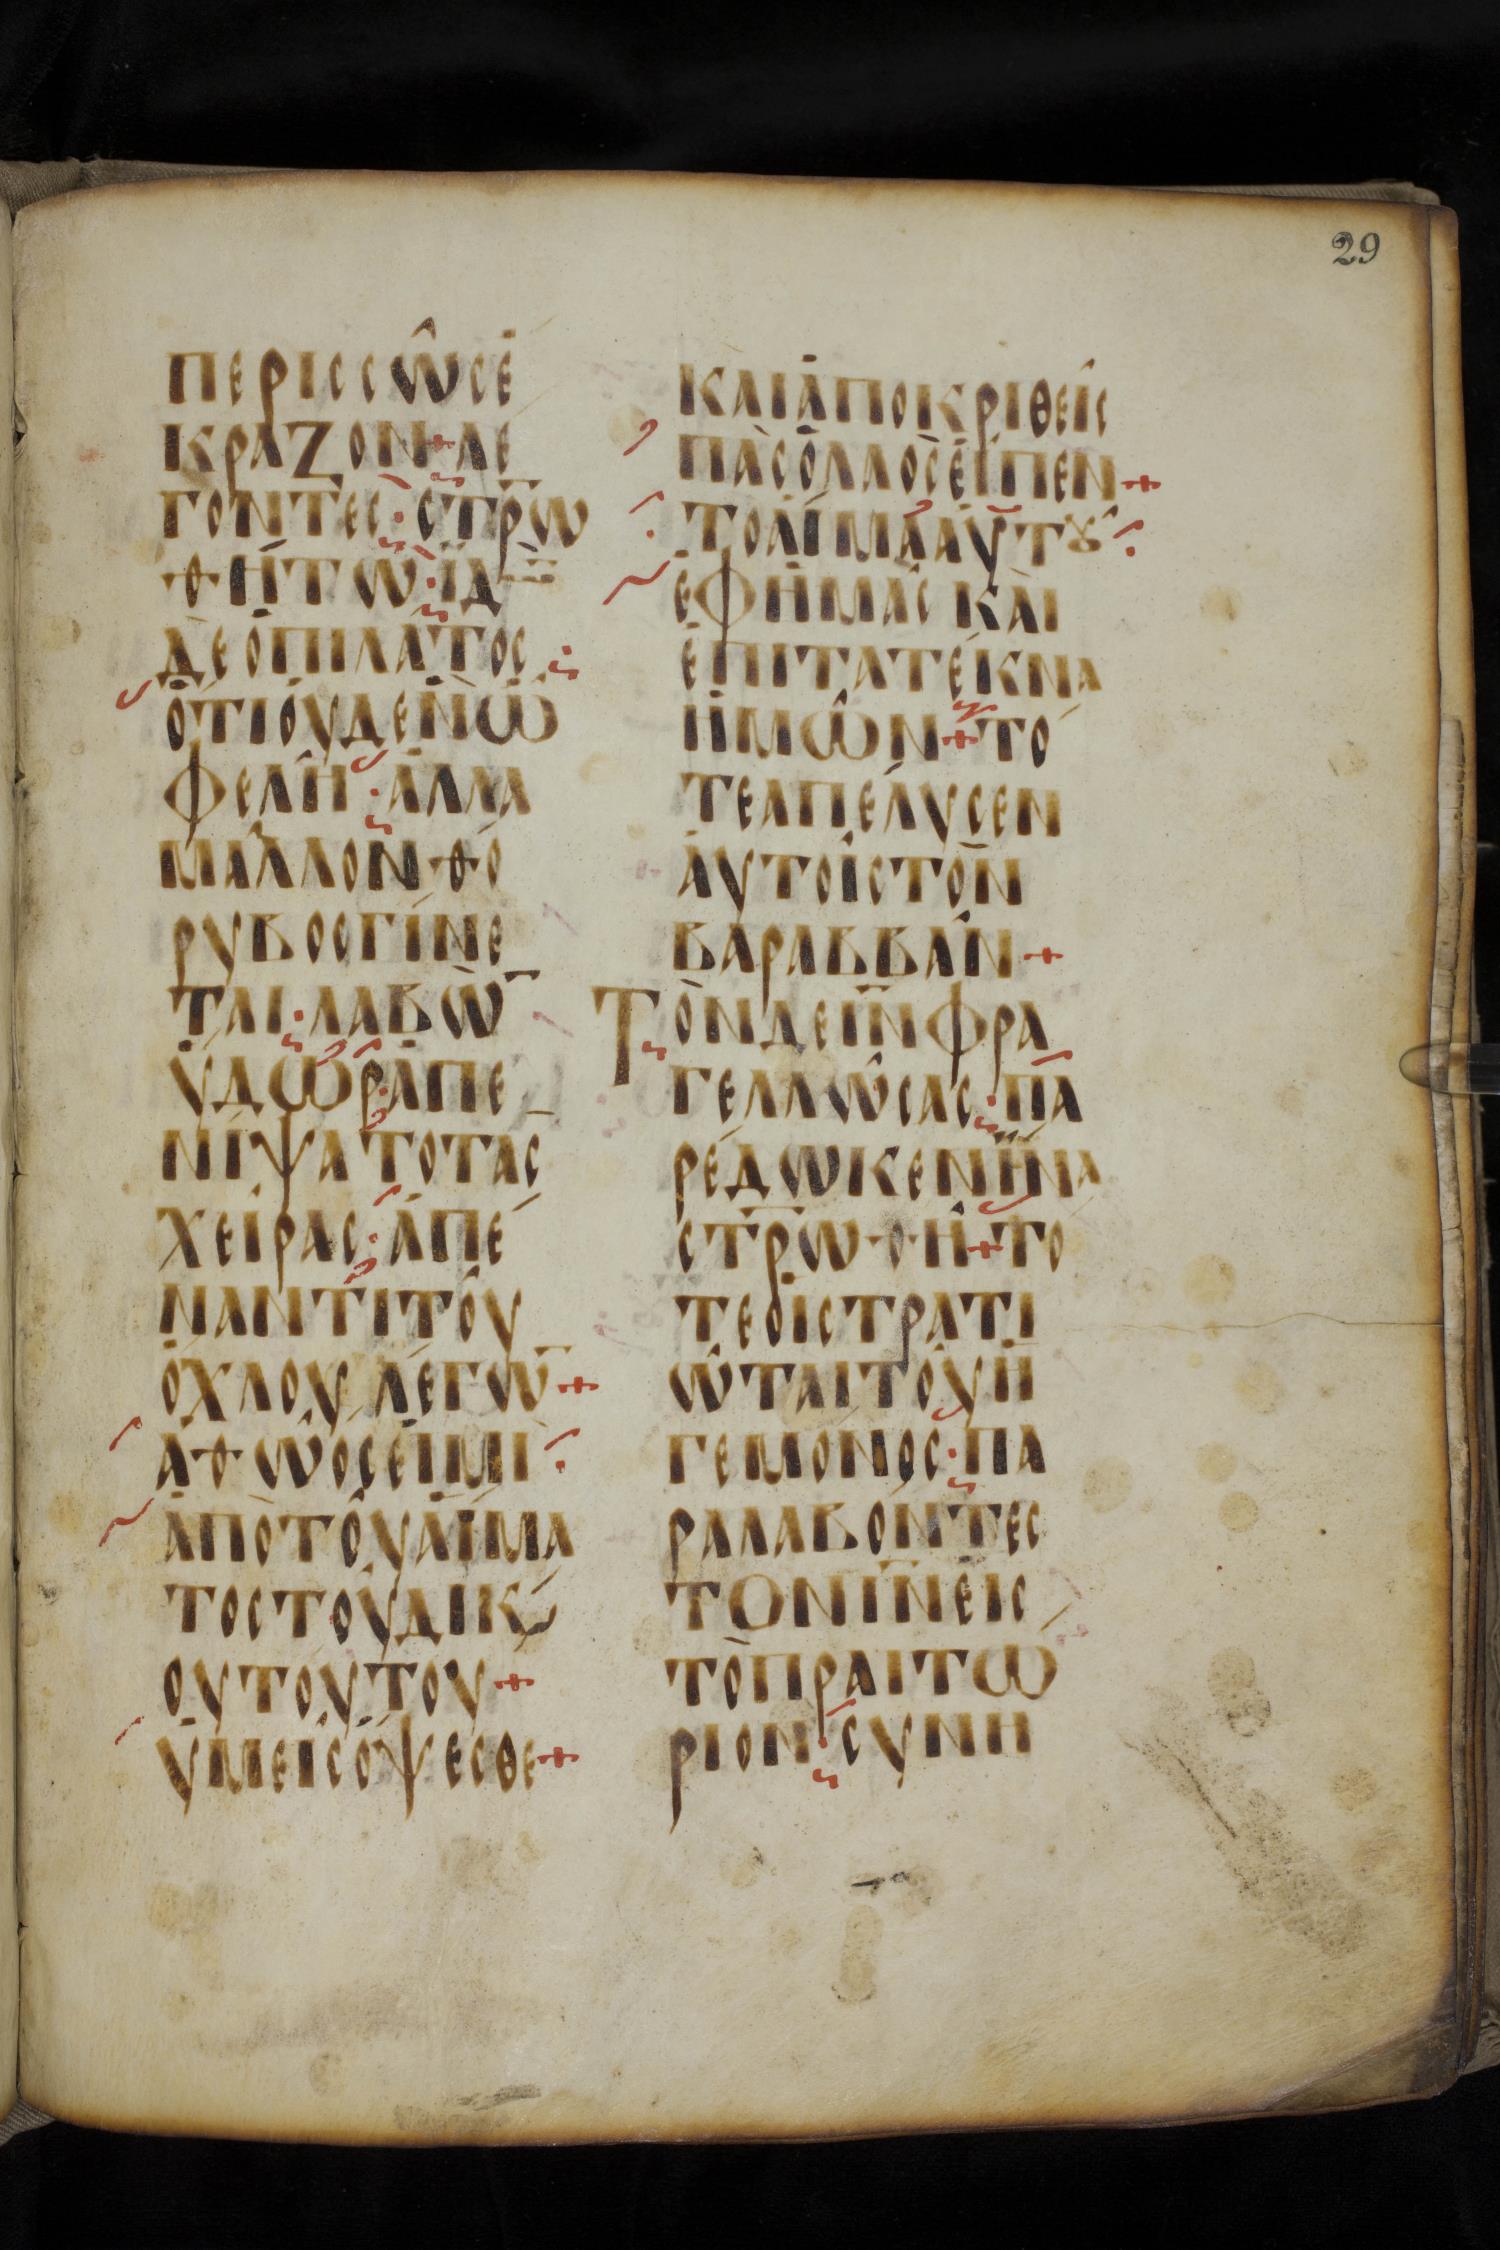 29
ΠΕΡΙΣΣΩ͂ΣΕ
ΚΡΑΖΟΝ+ΛΕ
ΓΟΝΤΕΣ·ΣΤΡ̅Ω
ΘΗΤΩ·ΙΔ̅
ΔΕΟΠΙΛΑΤΟΣ·
ΟΤΙΟΥΔΕΝΩ
ΦΕΛΗ·ΑΛΛΑ
ΜΑΛΛΟΝΘΟ
ΡΥΒΟΣΓΙΝΕ
ΤΑΙ·ΛΑΒΩ̅
ΥΔΩΡ·ΑΠΕ
ΝΙΨΑΤΟΤΑΣ
ΧΕΙΡΑΣ·ΑΠΕ
ΝΑΝΤΙΤΟΥ
ΟΧΛΟΥΛΕΓΩ̅+
ΑΘΩΟΣΕΙΜΙ·
ΑΠΟΤΟΥΑΙΜΑ
ΤΟΣΤΟΥΔΙΚΑΙ
ΟΥΤΟΥΤΟΥ+
ΥΜΕΙΣΟΨΕΣΘΕ+
ΚΑΙΑΠΟΚΡΙΘΕΙΣ
ΠΑΣΟΛΑΟΣΕΙΠΕΝ+
ΤΟΑΙΜΑΑΥΤȢ·
ΕΦΗΜΑΣΚΑΙ
ΕΠΙΤΑΤΕΚΝΑ
ΗΜΩΝ+ΤΟ
ΤΕΑΠΕΛΥΣΕΝ
ΑΥΤΟΙΣΤΟΝ
ΒΑΡΑΒΒΑΝ+
ΤΟΝΔΕΙ̅Ν̅ΦΡΑ
ΓΕΛΛΩΣΑΣ·ΠΑ
ΡΕΔΩΚΕΝΙΝΑ
ΣΤΡ̅ΩΘΗ+ΤΟ
ΤΕΟΙΣΤΡΑΤΙ
ΩΤΑΙΤΟΥΗ
ΓΕΜΟΝΟΣ·ΠΑ
ΡΑΛΑΒΟΝΤΕΣ
ΤΟΝΙ̅Ν̅ΕΙΣ
ΤΟΠΡΑΙΤΩ
ΡΙΟΝ·ΣΥΝΗ